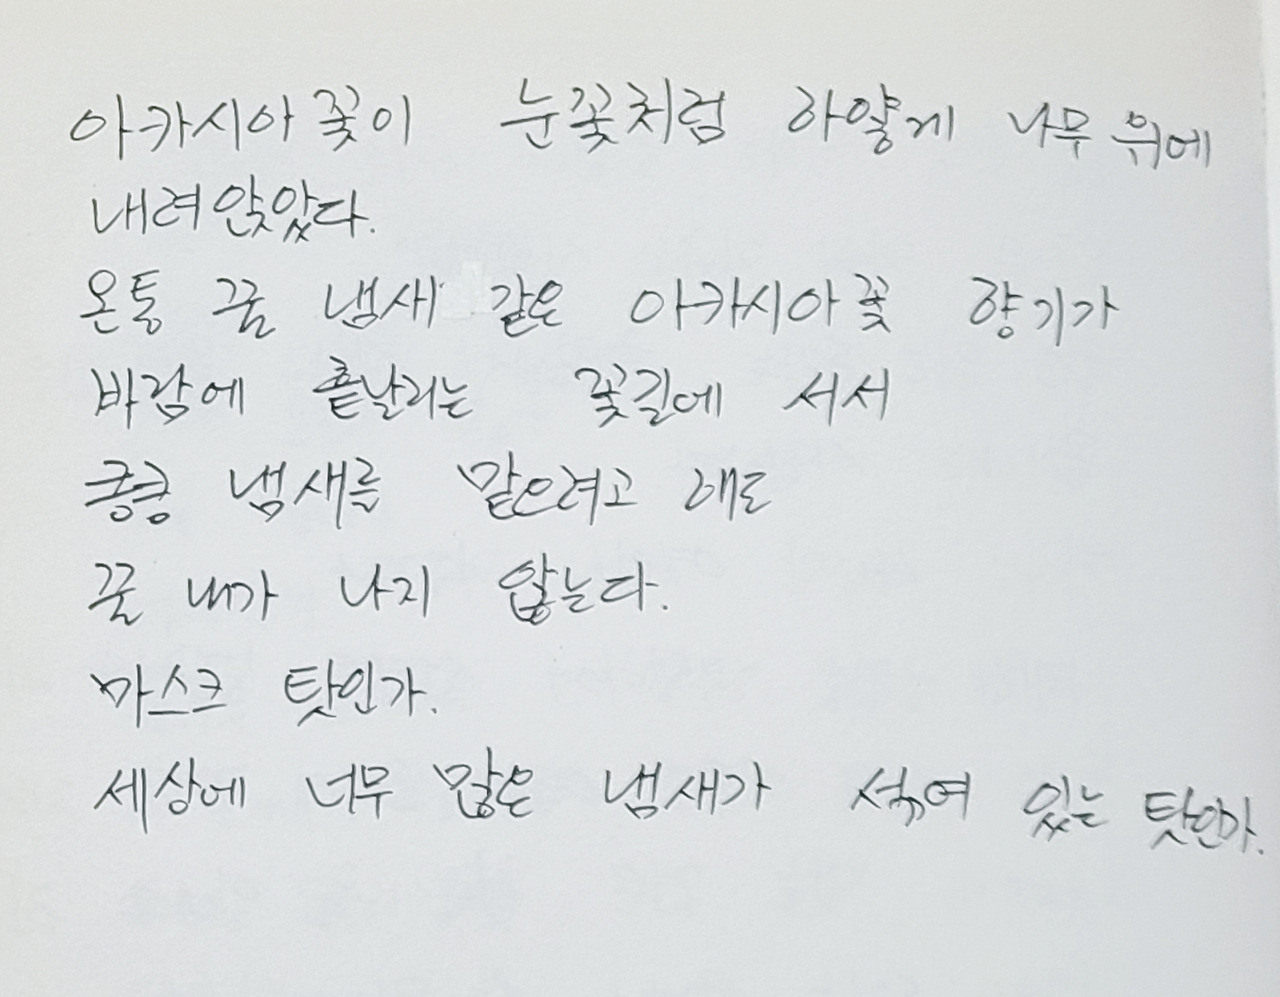 아카시아꽃이 눈꽃처럼 하얗게 나무 위에
내려 앉았다.
온통 꿀 냄새 같은 아카시아꽃 향기가
바람에 흩날리는 꽃길에 서서
킁킁 냄새를 맡으려고 해도
꿀 내가 나지 않는다.
마스크 탓인가.
세상에 너무 많은 냄새가 섞여 있는 탓인가.